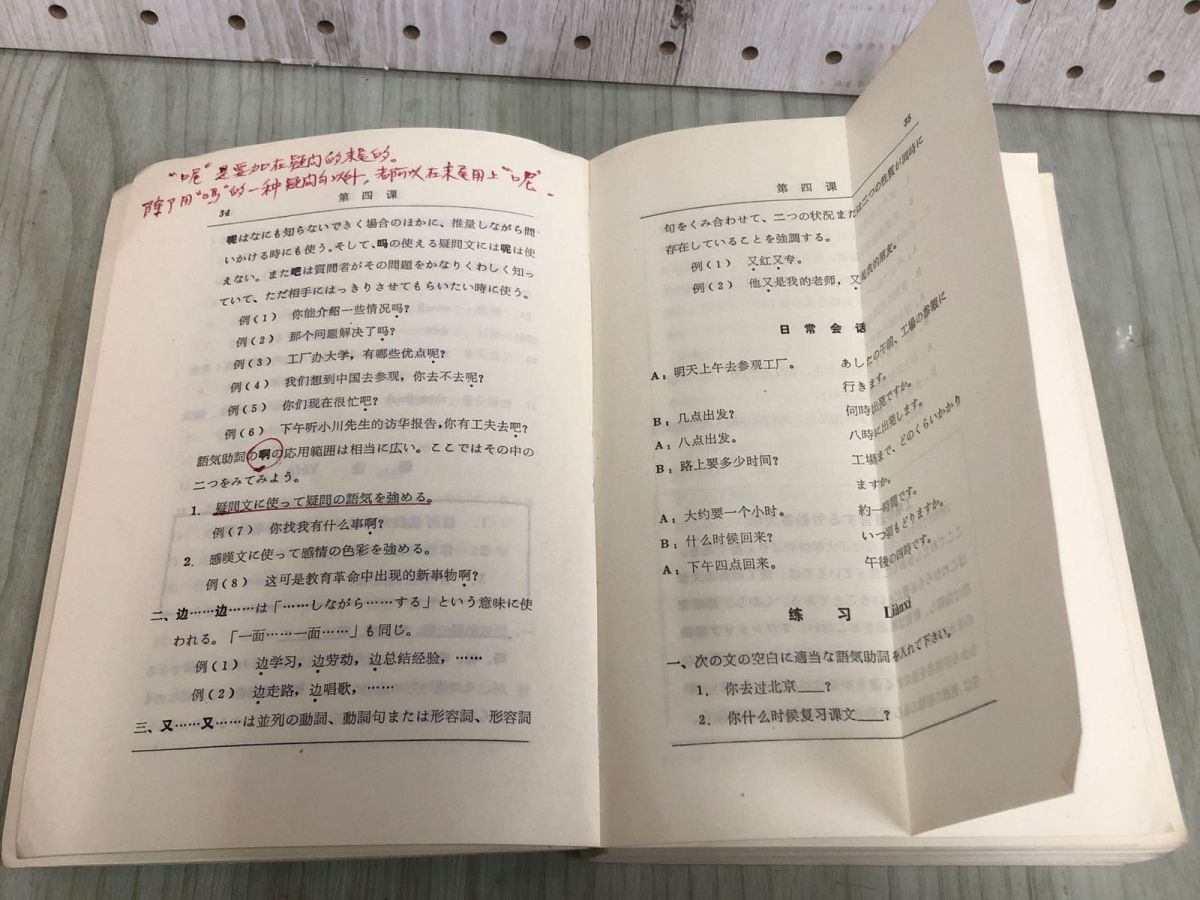 "呢"是要加在疑问的末尾的。
除了用"吗"的一种疑问句以外，都可以在末尾用上"呢"。
34
第 四 课
呢はなにも知らないできく場合のほかに、推量しながら問
いかける時にも使う。そして、吗の使える疑問文には呢は使
えない。また吧は質問者がその問題をかなりくわしく知っ
ていて、ただ相手にはっきりさせてもらいたい時に使う。
例(1) 你能介绍一些情况吗?
例(2) 那个问题解决了吗?
例(3) 工厂办大学，有哪些优点呢?
例(4) 我们想到中国去参观，你去不去呢?
例(5) 你们现在很忙吧?
例(6) 下午听小川先生的访华报告，你有工夫去吧?
語気助詞の啊の応用範囲は相当に広い。ここではその中の
二つをみてみよう。
1. 疑問文に使って疑問の語気を強める。
例(7) 你找我有什么事啊?
2. 感嘆文に使って感情の色彩を強める。
例(8) 这可是教育革命中出现的新事物啊?
二、边……边……は「……しながら……する」という意味に使
われる。「一面……一面……」も同じ。
例(1) 边学习，边劳动，边总结经验，……
例(2) 边走路，边唱歌，……
三、又……又……は並列の動詞、動詞句または形容詞、形容詞
35
第 四 课
句をくみ合わせて、二つの状況または二つの性質が同時に
存在していることを強調する。
例(1) 又红又专。
例(2) 他又是我的老师，又是我的朋友。
日 常 会 話
A：明天上午去参观工厂。 あしたの午前、工場の参観に
行きます。
B：几点出发? 何時出発ですか。
A：八点出发。 八時に出発します。
B：路上要多少时间? 工場まで、どのくらいかかり
ますか。
A：大约要一个小时。 約一時間です。
B：什么时候回来? いつ頃もどりますか。
A：下午四点回来。 午後の四時です。
练 习 Liànxí
一、次の文の空白に適当な語気助詞を入れて下さい。
1. 你去过北京____?
2. 你什么时候复习课文____?